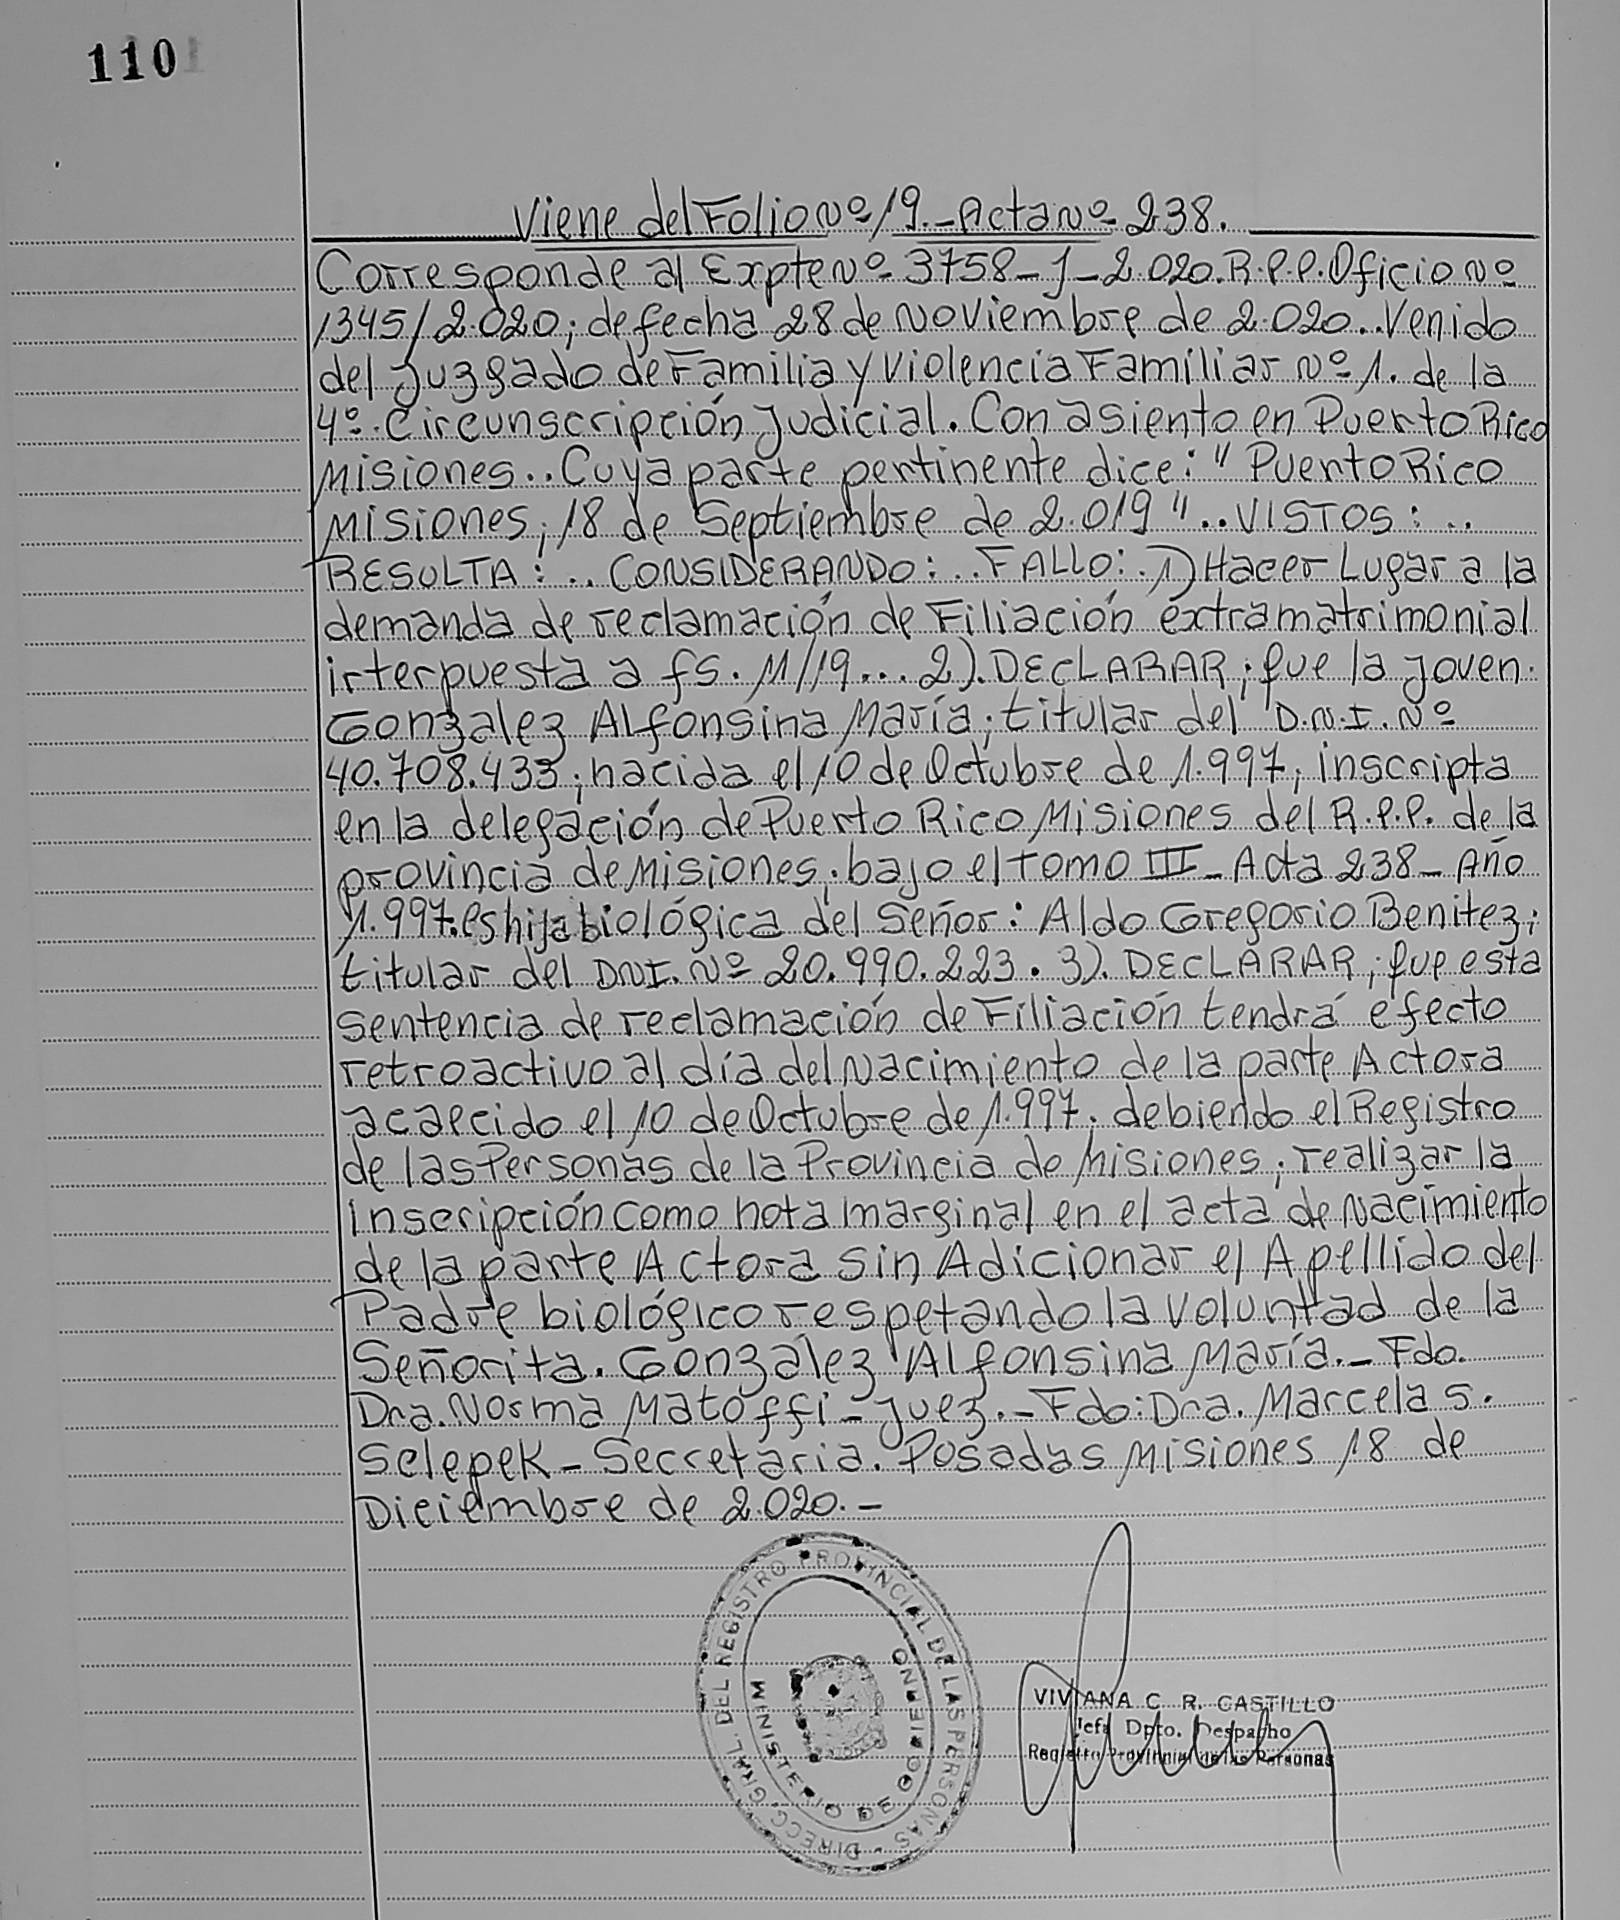 110
Viene del Folio Nº 19.- Acta Nº 238.
Corresponde al Expte Nº 3758-J-2.020. R.P.P. Oficio Nº
1345/2.020; de fecha 28 de Noviembre de 2.020.. Venido
del Juzgado de Familia y Violencia Familiar Nº 1. de la
4º. Circunscripción Judicial. Con asiento en Puerto Rico
Misiones.. Cuya parte pertinente dice: " Puerto Rico
Misiones, 18 de Septiembre de 2.019 ".. VISTOS: ..
RESULTA: .. CONSIDERANDO: .. FALLO: . 1) Hacer Lugar a la
demanda de reclamación de Filiación extramatrimonial
interpuesta a fs. 11/19... 2). DECLARAR; que la joven.
González Alfonsina María; titular del D.N.I. Nº
40.708.433; nacida el 10 de Octubre de 1.997, inscripta
en la delegación de Puerto Rico Misiones del R.P.P. de la
provincia de Misiones; bajo el Tomo III - Acta 238 - Año
1.997. es hija biológica del Señor: Aldo Gregorio Benitez;
titular del DNI. Nº 20.990.223. 3). DECLARAR; que esta
Sentencia de reclamación de Filiación tendrá efecto
retroactivo al día del Nacimiento de la parte Actora
acaecido el 10 de Octubre de 1.997; debiendo el Registro
de las Personas de la Provincia de Misiones; realizar la
Inscripción como nota marginal en el acta de Nacimiento
de la parte Actora sin Adicionar el Apellido del
Padre biológico respetando la Voluntad de la
Señorita. González Alfonsina María.- Fdo.
Dra. Norma Matoffi - Juez.- Fdo: Dra. Marcela S.
Selepek - Secretaria. Posadas Misiones 18 de
Diciembre de 2.020.-
DIRECC. GRAL. DEL REGISTRO PROVINCIAL DE LAS PERSONAS -
MINISTERIO DE GOBIERNO
VIVIANA C. R. CASTILLO
Jefa Dpto. Despacho
Registro Provincial de las Personas